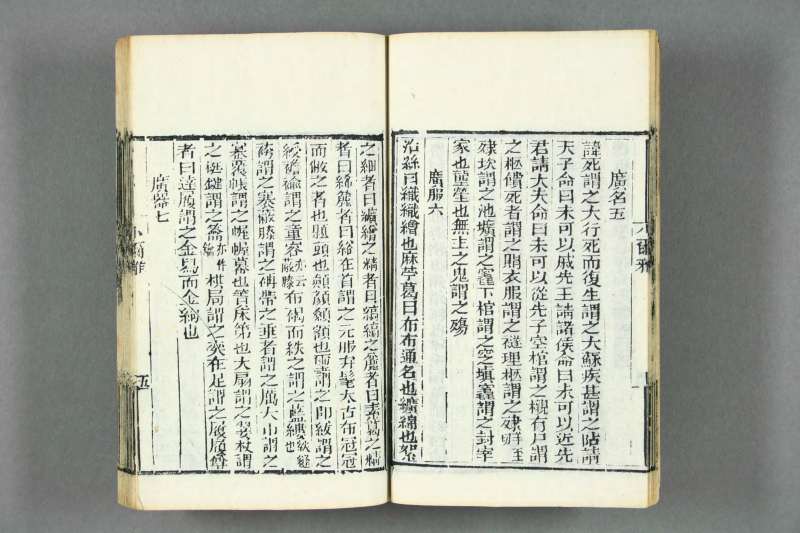 廣名五
諱死謂之大行死而復生謂之大蘇疾甚謂之阽請
天子命曰未可以戚先王請諸侯命曰未可以近先
君請大夫命曰未可以從先子空棺謂之櫬有尸謂
之柩饋死者謂之賵衣服謂之襚埋柩謂之肂肂
肂坎謂之池壙謂之竁下棺謂之窆填竁謂之封宰
冢也壟塋也無主之鬼謂之殤
廣服六
治絲曰織織繒也麻苧葛曰布布通名也纊綿也絮
之細者曰纊繒之精者曰縞縞之麤者曰素葛之精
者曰絺麤者曰綌在首謂之元服弁髦太古布冠冠
而敝之者也題頭也顛顏顙額也璽謂之印紱謂之
綬襜褕謂之童容亦云蔽膝布褐而紩之謂之藍縷
袴謂之褰蔽膝謂之袡帶之垂者謂之厲大巾謂之
冪覆帳謂之幄幄幕也簀床笫也大扇謂之翣杖謂
之梃鍵謂之籥棋局謂之奕在足謂之履履尊
者曰達履謂之金舄而金絇也
廣器七
小爾雅
小爾雅
五